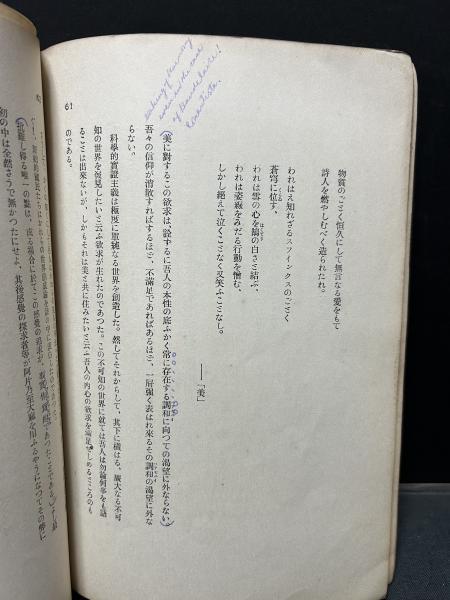 物質のごとく恒久にして無言なる愛をもて
詩人を燃やしむべく造られたれ。
われはえ知れざるスフインクスのごとく
蒼穹に位す、
われは雪の心を鵠の白さと結ぶ、
われは姿線をみだる行動を憎む、
しかし絶えて泣くことなく又笑ふことなし。
――「美」
(美に對するこの欲求は、詮ずるに吾人の本性の底ふかく常に存在する調和に向つての渇望に外ならない)
吾々の信仰が消散すればするほど、不滿足であればあるほど、一層強く表はれ來るその調和の渇望に外な
らない。
科學的實證主義は極度に單純な世界を創造した。然してそれからして、其下に横はる、厖大なる不可
知の世界を後見したいと云ふ欲求が生れたのであつた。この不可知の世界に就ては吾人は勿論何事をも語
ることは出來ないが、しかもそれは美と共に住みたいと云ふ吾人の内心の欲求を滿足せしめるところのも
のである。
61
of Baudelaire!
初の中は全然さうで無かつたにせよ、其後感覺の探求者等が阿片乃至大麻を用ふるやうになつてその際に